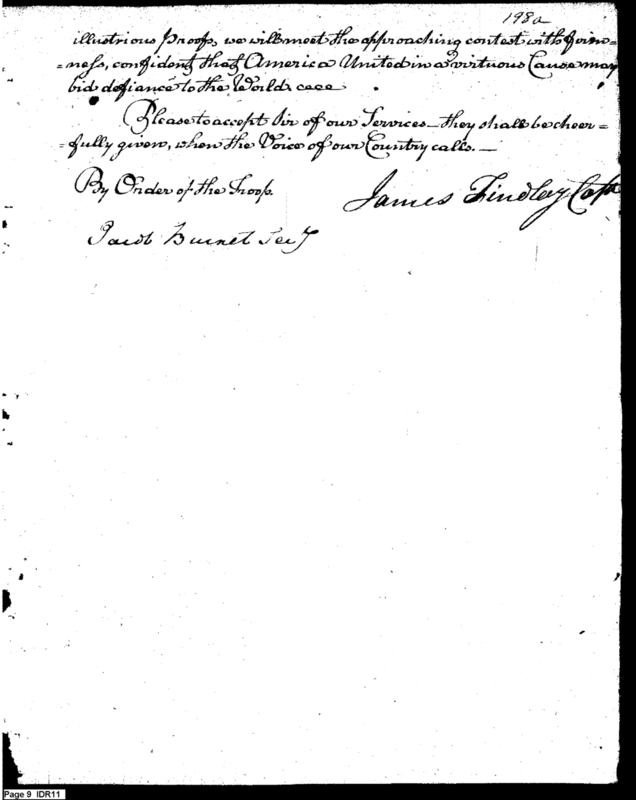 198a
illustrious Proofs, we will meet the approaching contest with firm=
=ness, confident that America United in a virtuous Cause may
bid defiance to the World
Please to accept Sir of our Services — they shall be cheer=
=fully given, when the Voice of our Country calls. —
By Order of the Troop.
James Findlay Capt
Jacob Burnet Secy
Page 9 IDR11